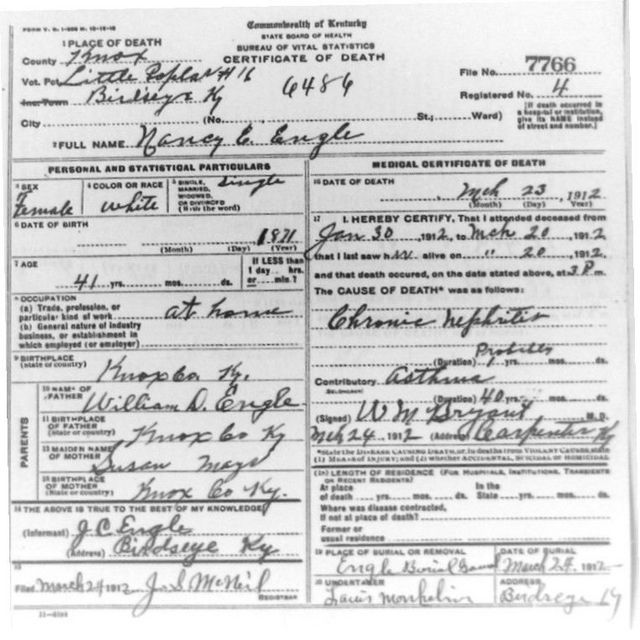 FORM V. S. 1-50M 10-18-10
Commonwealth of Kentucky
STATE BOARD OF HEALTH
BUREAU OF VITAL STATISTICS
CERTIFICATE OF DEATH
1 PLACE OF DEATH
County Knox
Vot. Pct. Little Poplar # 16
Inc. Town Birdseye Ky
6486
File No. 7766
Registered No. 4
City (No. St.; Ward)
[If death occurred in a hospital or institution, give its NAME instead of street and number.]
2 FULL NAME Nancy E. Engle
PERSONAL AND STATISTICAL PARTICULARS
3 SEX Female
4 COLOR OR RACE white
5 SINGLE, MARRIED, WIDOWED, OR DIVORCED (Write the word) Single
6 DATE OF BIRTH 1871
(Month) (Day) (Year)
7 AGE 41 yrs. mos. ds.
If LESS than 1 day hrs. or min.?
8 OCCUPATION
(a) Trade, profession, or particular kind of work at home
(b) General nature of industry business, or establishment in which employed (or employer)
9 BIRTHPLACE (State or country) Knox Co Ky.
PARENTS
10 NAME OF FATHER William D. Engle
11 BIRTHPLACE OF FATHER (State or country) Knox Co Ky
12 MAIDEN NAME OF MOTHER Susan Mays
13 BIRTHPLACE OF MOTHER (State or country) Knox Co Ky.
14 THE ABOVE IS TRUE TO THE BEST OF MY KNOWLEDGE
(Informant) J C Engle
(Address) Birdseye Ky
15
Filed March 24 1912 J. S. McNeil
REGISTRAR
11-6094
MEDICAL CERTIFICATE OF DEATH
16 DATE OF DEATH Mch 23, 1912
(Month) (Day) (Year)
17 I HEREBY CERTIFY, That I attended deceased from
Jan 30, 1912, to Mch 20, 1912
that I last saw her alive on " 20, 1912,
and that death occured, on the date stated above, at 3 P m.
The CAUSE OF DEATH* was as follows:
Chronic nephritis
(Duration) 1 yrs. mos. ds.
Contributory Asthma
(SECONDARY)
(Duration) 40 yrs. mos. ds.
(Signed) W M Bryant M. D.
Mch 24, 1912 (Address) Carpenter Ky
*State the DISEASE CAUSING DEATH, or, in deaths from VIOLENT CAUSES, state (1) MEANS OF INJURY; and (2) whether ACCIDENTAL, SUICIDAL or HOMICIDAL
18 LENGTH OF RESIDENCE (FOR HOSPITALS, INSTITUTIONS, TRANSIENTS OR RECENT RESIDENTS)
At place of death yrs. mos. ds.
In the State yrs. mos. ds.
Where was disease contracted, if not at place of death?
Former or usual residence
19 PLACE OF BURIAL OR REMOVAL Engle Burial Ground
DATE OF BURIAL March 24, 1912
20 UNDERTAKER Louis
ADDRESS Birdseye Ky